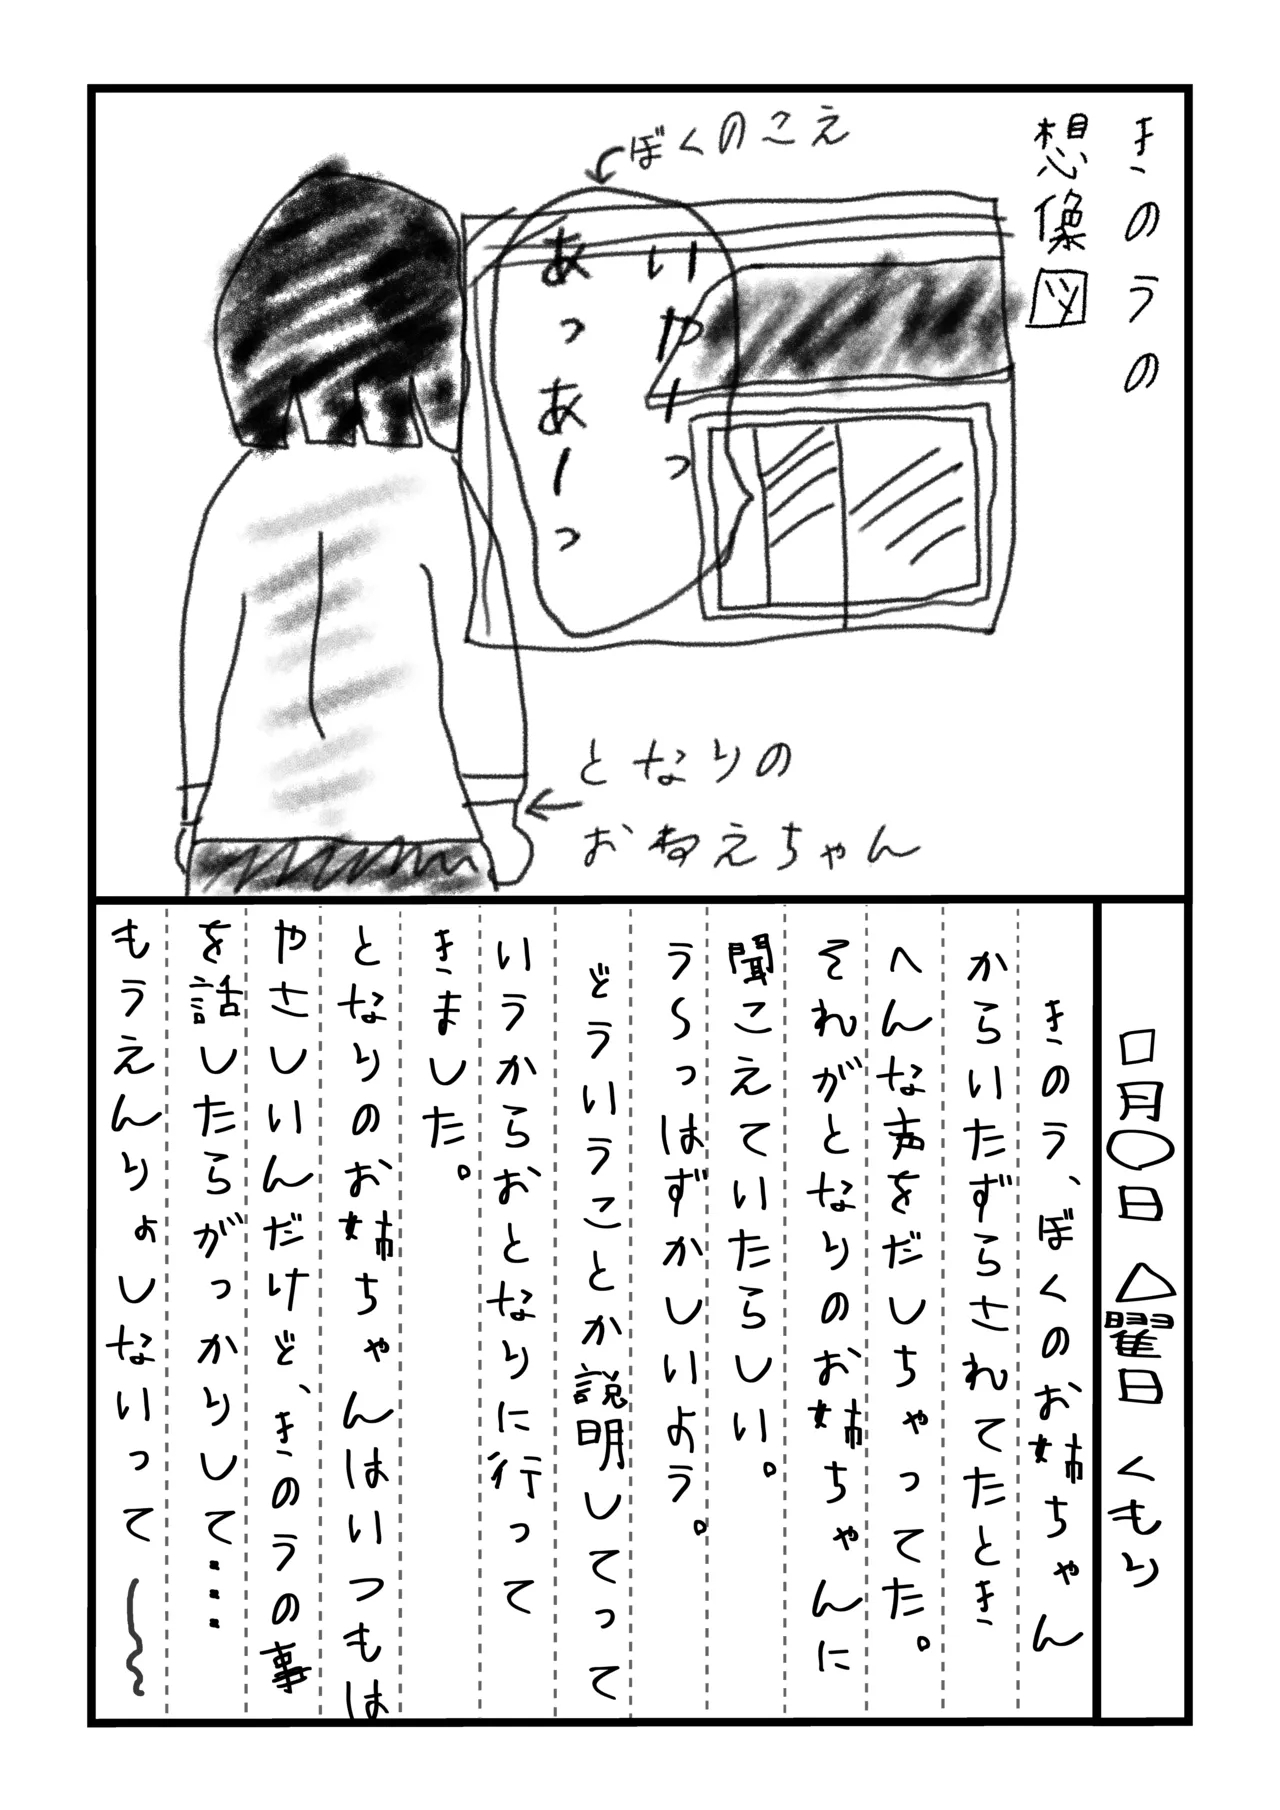 きのうの
想像図
ぼくのこえ
いやーっ
あっあーっ
となりの
おねえちゃん
□月○日 △曜日 くもり
きのう、ぼくのお姉ちゃん
からいたずらされてたとき
へんな声をだしちゃってた。
それがとなりのお姉ちゃんに
聞こえていたらしい。
う〜っはずかしいよう。
どういうことか説明してって
いうからおとなりに行って
きました。
となりのお姉ちゃんはいつもは
やさしいんだけど、きのうの事
を話したらがっかりして…
もうえんりょしないって〜